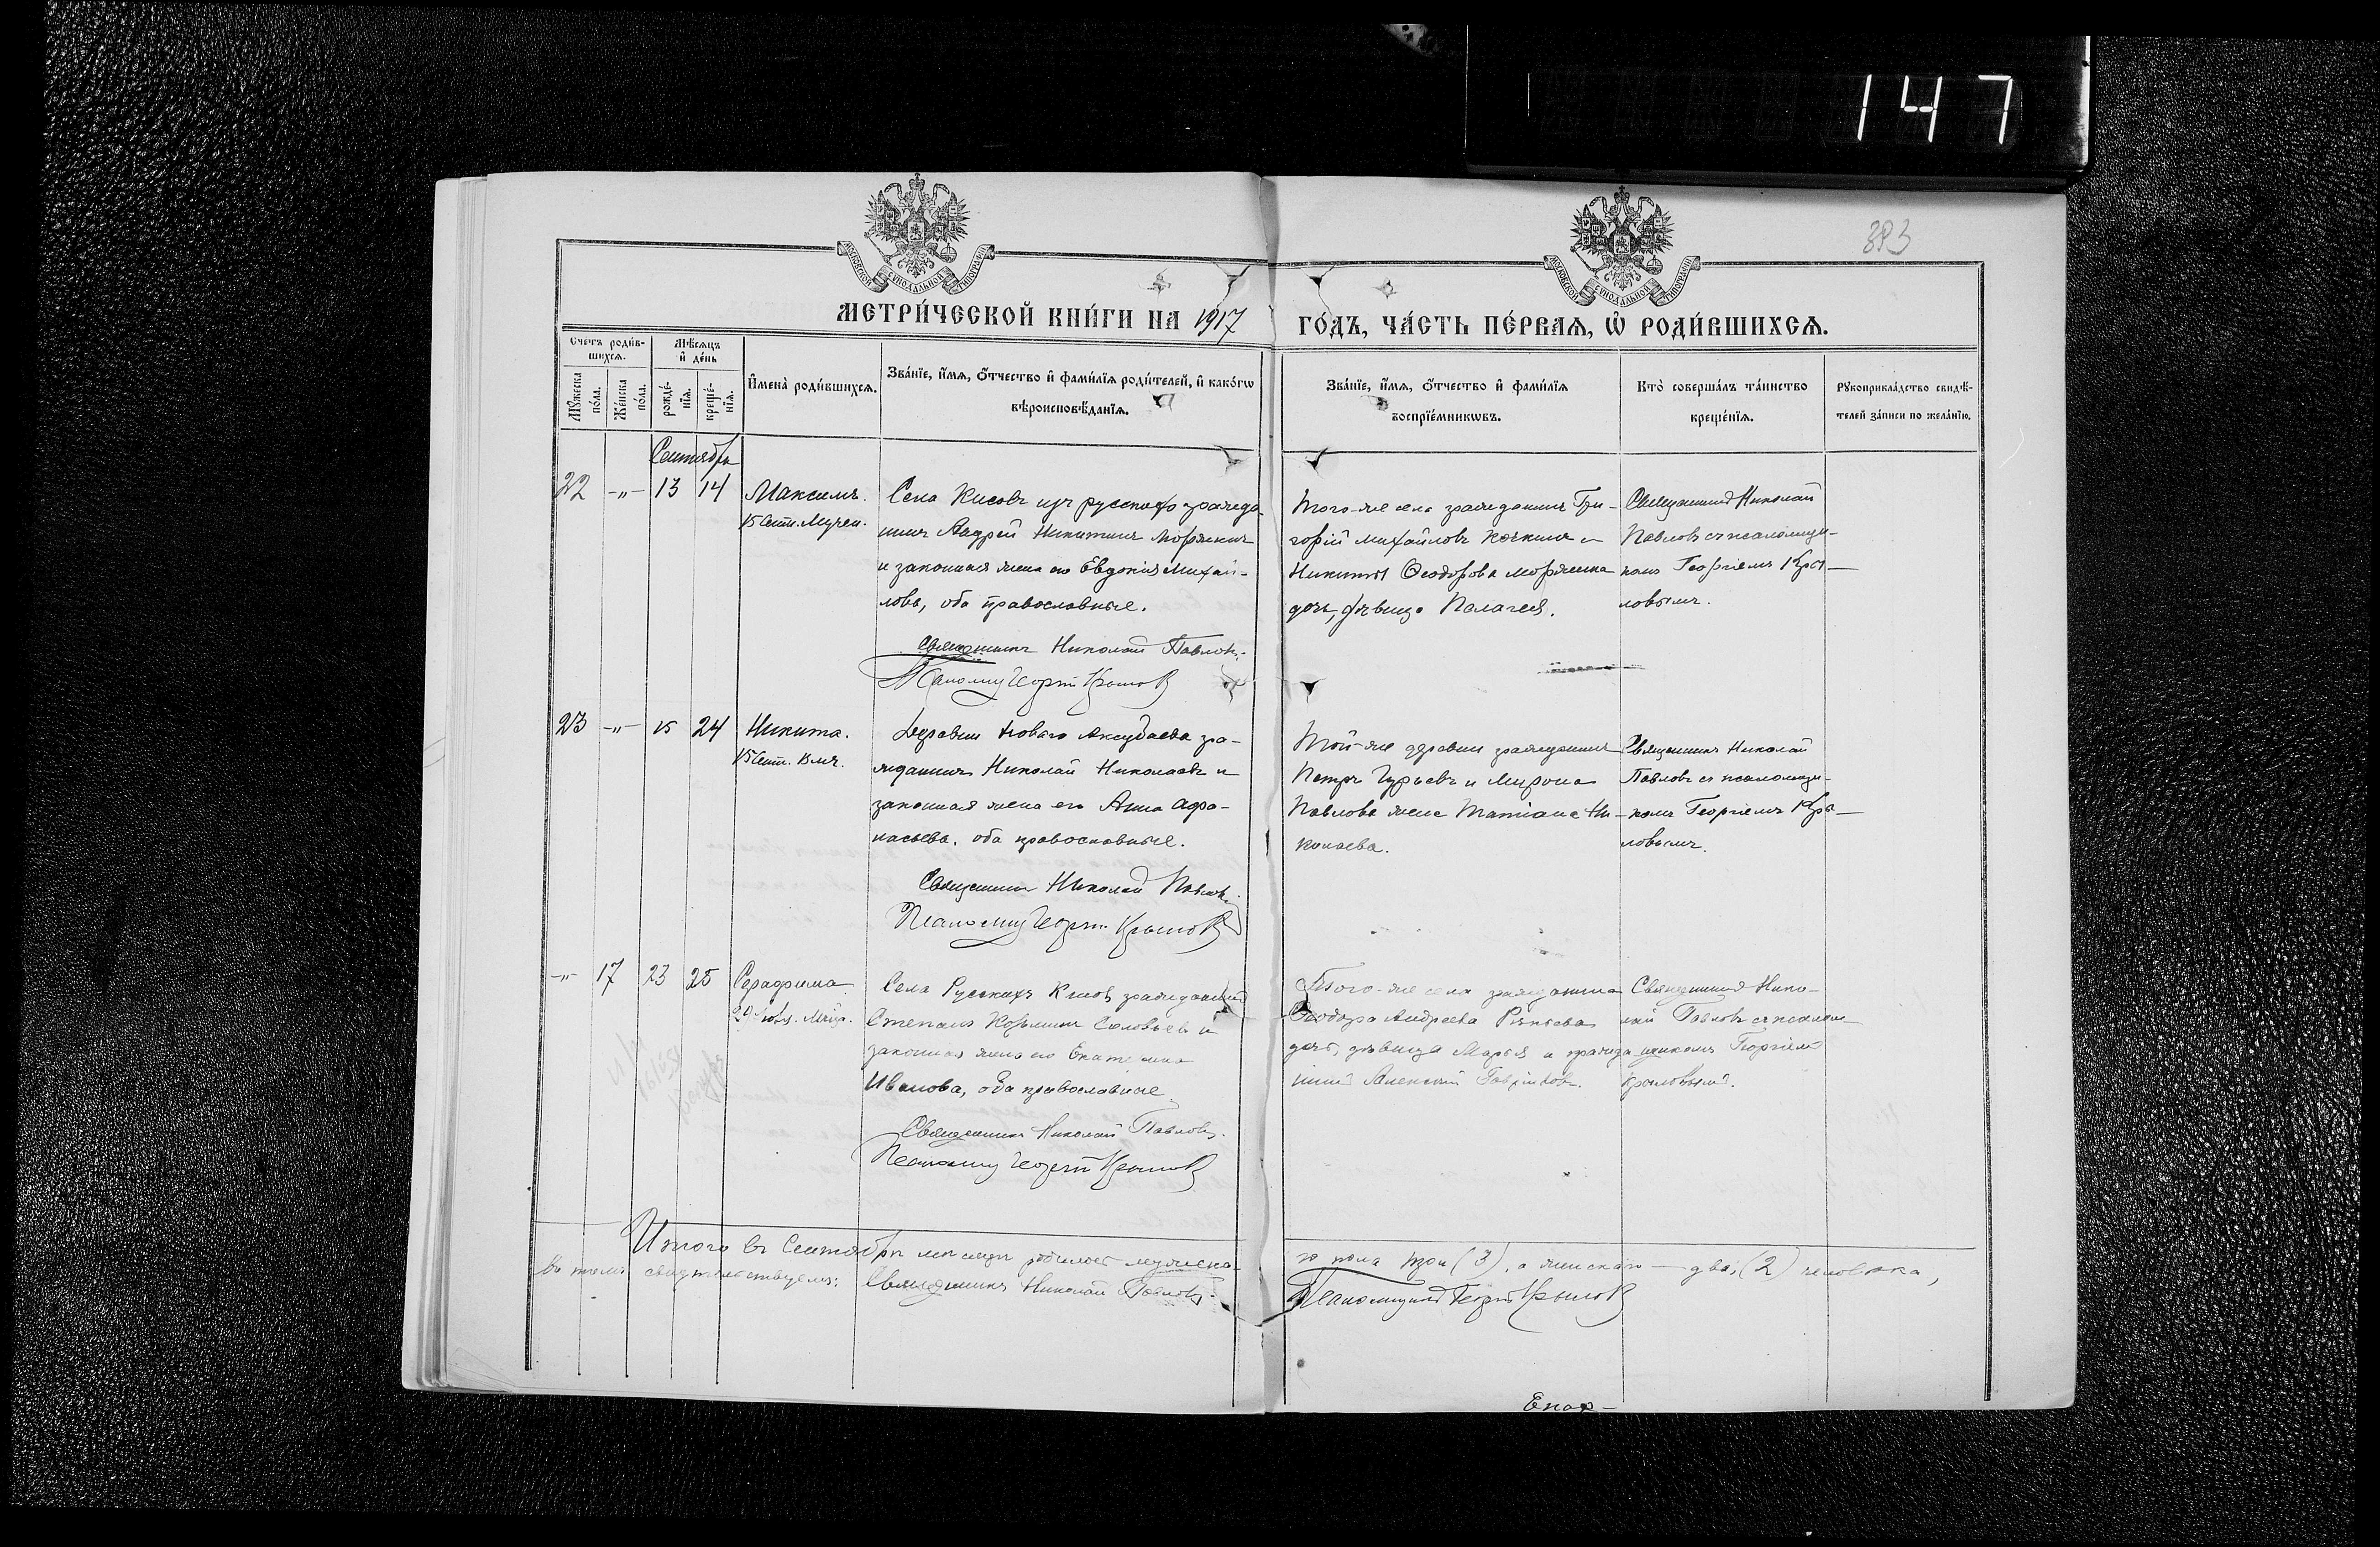 147
393
МОСКОВСКОЙ СУНОДАЛЬНОЙ ТИПОГРАФІИ
МОСКОВСКОЙ СУНОДАЛЬНОЙ ТИПОГРАФІИ
МЕТРИ́ЧЕСКОЙ КНИ́ГИ НА 1917 ГО́ДЪ, ЧА́СТЬ ПЕ́РВАѦ, Ѡ҆ РОДИ́ВШИХСѦ.
Счетъ роди́в-
шихсѧ.
Мꙋ́жеска по́ла.
Же́нска по́ла.
Мѣ́сѧцъ
и҆ де́нь
рожде́-
нїѧ.
креще́-
нїѧ.
И҆мена̀ роди́вшихсѧ.
Зва́нїе, и҆́мѧ, ѻ҆́тчество и҆ фами́лїѧ роди́телей, и҆ како́гѡ
вѣроисповѣ́данїѧ.
Зва́нїе, и҆́мѧ, ѻ҆́тчество и҆ фами́лїѧ
воспрїе́мникѡвъ.
Кто̀ соверша́лъ та́инство
креще́нїѧ.
Рꙋкоприкла́дство свидѣ́-
телей за́писи по жела́нїю.
Сентябрь
22 -„- 13 14
Максимъ.
15 Сент. Мучен.
Села Кисовъ изъ русскихъ гражда-
нинъ Андрей Никитинъ Моряхинъ
и законная жена его Евдокія Михай-
лова, оба православные.
Священникъ Николай Павловъ.
Псаломщ Георгій Крыловъ
Того-же села гражданинъ Гри-
горій Михайловъ и
Никиты Ѳеодорова
дочь, дѣвица Палагея.
Священникъ Николай
Павловъ съ псаломщи-
комъ Георгіемъ Кры-
ловымъ.
23 -„- 15 24
Никита.
15 Сент. Вмч.
Деревни Новаго Аксубаева гра-
жданинъ Николай Николаевъ и
законная жена его Анна Афа-
насьева, оба православные.
Священникъ Николай Павловъ.
Псаломщ Георгій Крыловъ
Той-же деревни гражданинъ
Петръ Гурьевъ и Мирона
Павлова жена Татіана Ни-
колаева.
Священникъ Николай
Павловъ съ псаломщи-
комъ Георгіемъ Кры-
ловымъ.
-„- 17 23 25
Серафима
29 Мчц.
Села Русскихъ Кисовъ гражданинъ
Степанъ Козьминъ Соловьевъ и
законная жена его Екатерина
Иванова, оба православные
Священникъ Николай Павловъ.
Псаломщ Георгій Крыловъ
Того-же села гражданина
Ѳеодора Андреева
дочь, дѣвица Марья и гражда-
нинъ Алексѣй Гавриловъ.
Священникъ Нико-
лай Павловъ съ псалом-
щикомъ Георгіемъ
Крыловымъ.
Итого въ Сентябрѣ мѣсяцѣ родилось мужеска-
го пола три (3), а женскаго — два, (2) человѣка,
Въ томъ свидѣтельствуемъ: Священникъ Николай Павловъ.
Псаломщикъ Георгій Крыловъ
Епар-